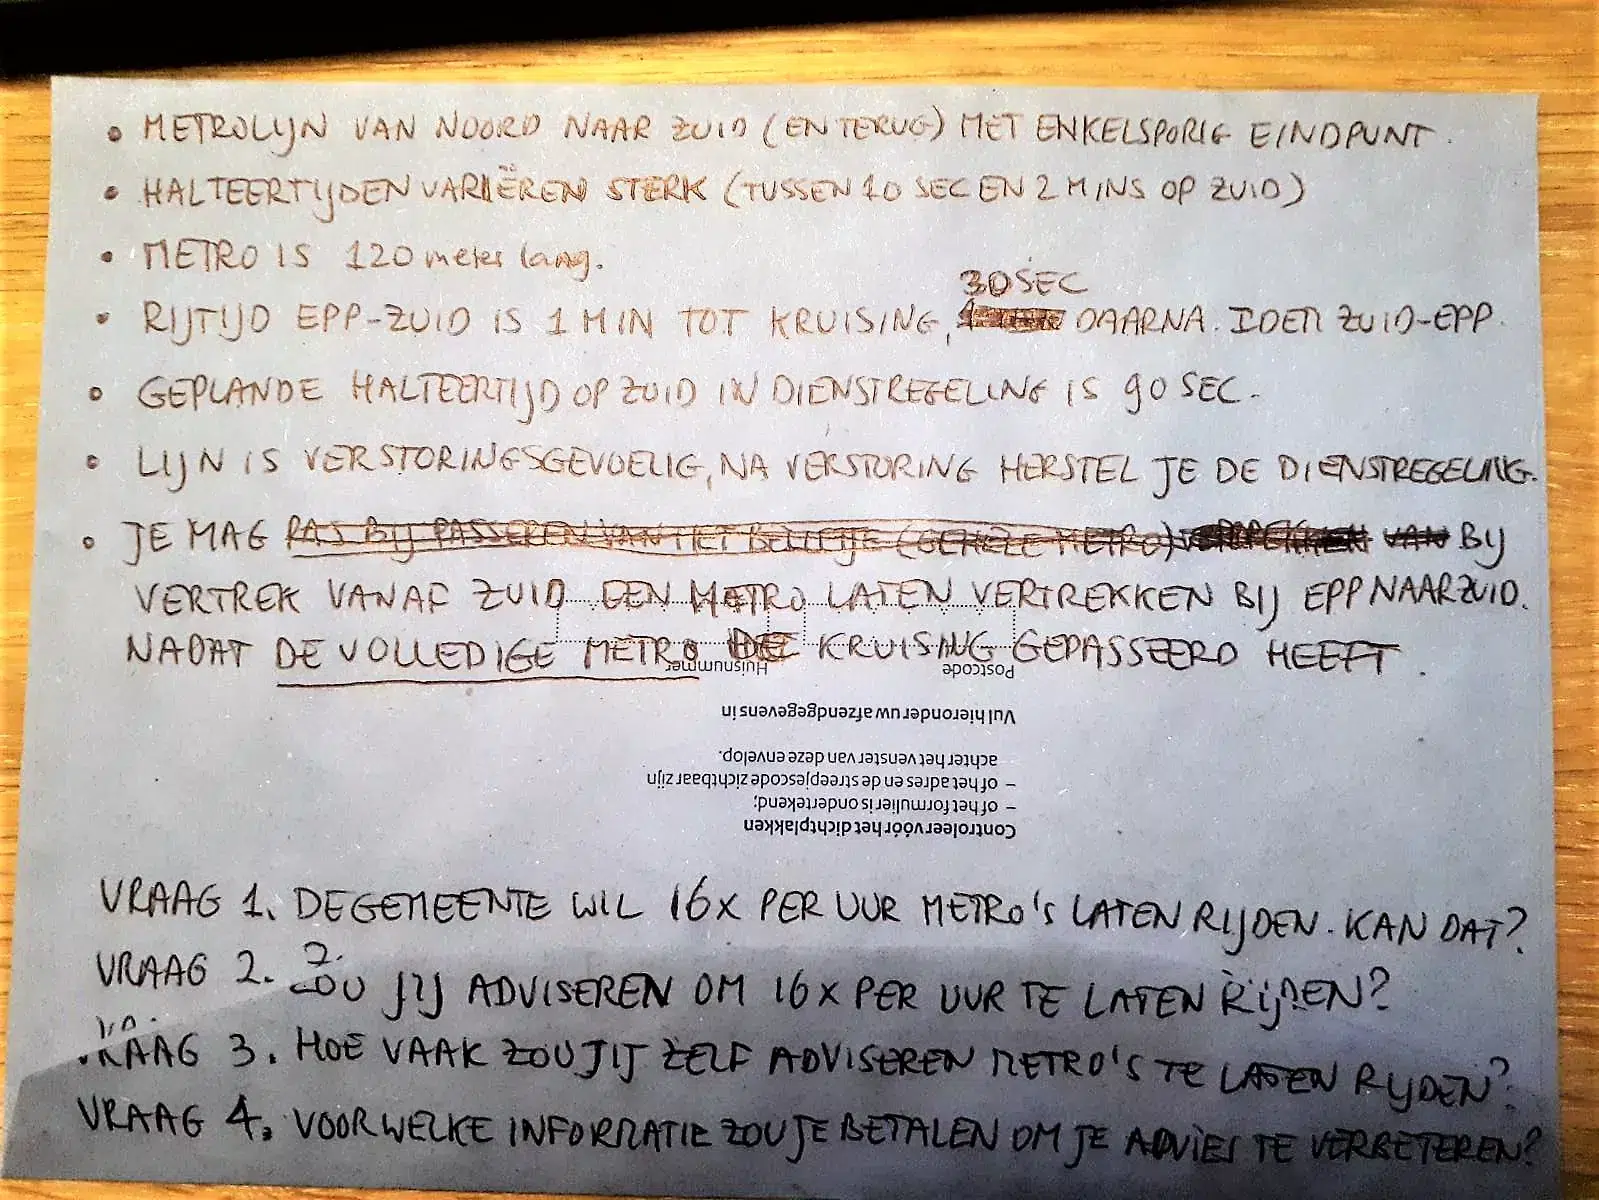 • METROLIJN VAN NOORD NAAR ZUID (EN TERUG) MET ENKELSPORIG EINDPUNT.
• HALTEERTIJDEN VARIËREN STERK (TUSSEN 10 SEC EN 2 MINS OP ZUID)
• METRO IS 120 meter lang.
30 SEC
• RIJTIJD EPP-ZUID IS 1 MIN TOT KRUISING, DAARNA. IDEM ZUID-EPP.
• GEPLANDE HALTEERTIJD OP ZUID IN DIENSTREGELING IS 90 SEC.
• LIJN IS VERSTORINGSGEVOELIG, NA VERSTORING HERSTEL JE DE DIENSTREGELING.
• JE MAG PAS BIJ PASSEREN VAN HET (GEHELE METRO) VAN BIJ
VERTREK VANAF ZUID EEN METRO LATEN VERTREKKEN BIJ EPP NAAR ZUID.
NADAT DE VOLLEDIGE METRO DE KRUISING GEPASSEERD HEEFT.
Huisnummer Postcode
Vul hieronder uw afzendgegevens in
achter het venster van deze envelop.
– of het adres en de streepjescode zichtbaar zijn
– of het formulier is ondertekend;
Controleer vóór het dichtplakken
VRAAG 1. DE GEMEENTE WIL 16X PER UUR METRO'S LATEN RIJDEN. KAN DAT?
VRAAG 2. ZOU JIJ ADVISEREN OM 16X PER UUR TE LATEN RIJDEN?
VRAAG 3. HOE VAAK ZOU JIJ ZELF ADVISEREN METRO'S TE LATEN RIJDEN?
VRAAG 4. VOOR WELKE INFORMATIE ZOU JE BETALEN OM JE ADVIES TE VERBETEREN?